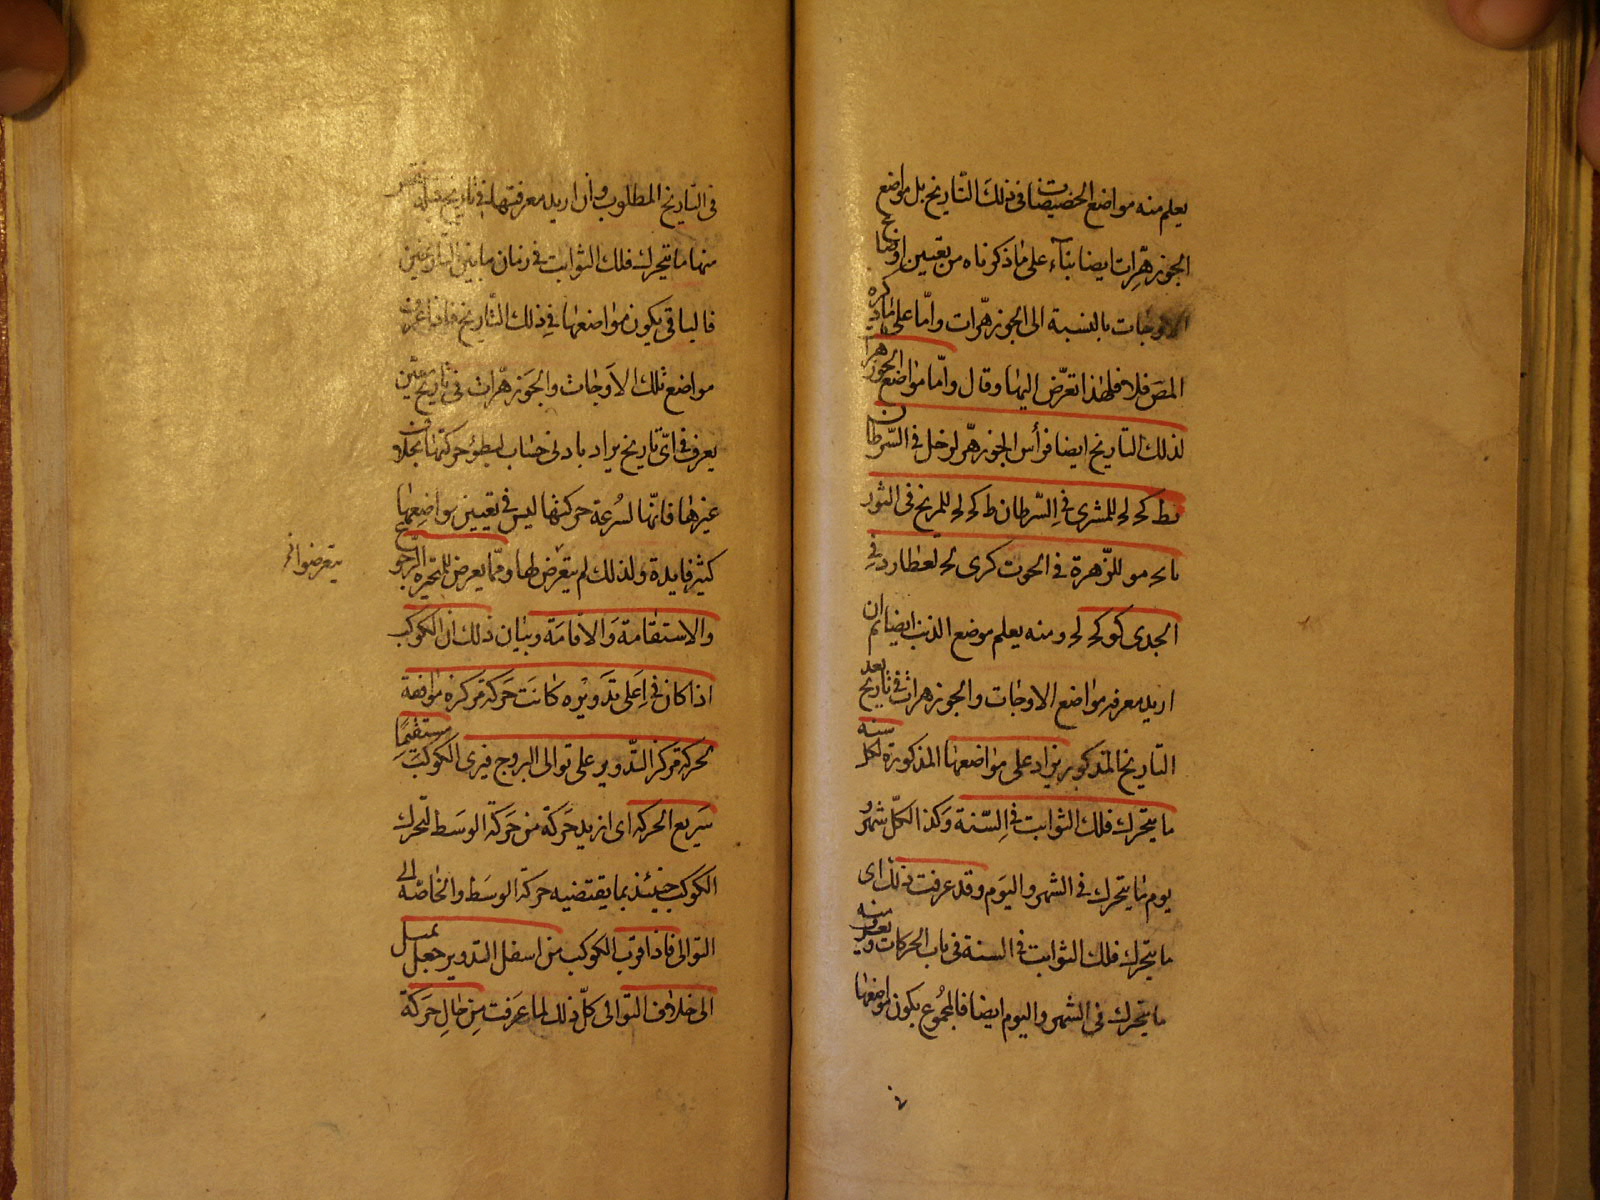 يعلم منه مواضع الحضيضات فى ذلك التاريخ بل مواضع
الجوزهرات ايضا بناء على ما ذكرناه من تعيين اوضاع
الاوجات بالنسبة الى الجوزهرات وأمّا على ما ذكره
المص فلا فلهذا تعرّض اليها وقال وأمّا مواضع الجوزهرات
لذلك التاريخ ايضا فرأس الجوزهر لزحل فى السّرطان
يط كح لح للمشترى فى السّرطان ط كح لح للمريخ فى الثور
يا يح مو للزّهرة فى الحوت كرى لعطارد فى
الجدى كو كح لح ومنه يعلم موضع الذنب ايضا ثم ان
اريد معرفة مواضع الاوجات والجوزهرات فى تاريخ بعد
التاريخ المذكور يزاد على مواضعها المذكورة لكل سنه
ما يتحرك فلك الثوابت فى السّنة وكذا لكلّ شهر و
يوم ما يتحرك فى الشهر واليوم وقد عرفت ذلك اى
ما يتحرك فلك الثوابت فى السنة فى باب الحركات ويعرف منه
ما يتحرك فى الشهر واليوم ايضا فالمجموع يكون مواضعها
فى التاريخ المطلوب وان اريد معرفتها فى تاريخ قبله نقص
منها ما يتحرك فلك الثوابت فى زمان ما بين التاريخين
فالباقى يكون مواضعها فى ذلك التّاريخ فاذا عرفت
مواضع تلك الاوجات والجوزهرات فى تاريخ معيّن
يعرف فى اىّ تاريخ يراد بادنى حساب لبطؤ حركتها بخلاف
غيرها فانّها لسرعة حركتها ليس فى تعيين مواضعها
كثير فايدة ولذلك لم يتعرض لها وممّا يعرض للمتحيره الرجوع
يتعرضوا
والاستقامة والاقامة وبيان ذلك ان الكوكب
اذا كان فى اعلى تدويره كانت حركة مركزه موافقة
لحركة مركز التّدوير على توالى البروج فيرى الكوكب مستقيمًا
سريع الحركه اى ازيد حركة من حركة الوسط لتحرك
الكوكب حينئذ بما يقتضيه حركة الوسط والخاصّه الى
التوالى فاذا قرب الكوكب من اسفل التدوير جعل يميل
الى خلاف التوالى كلّ ذلك لما عرفت من حال حركة